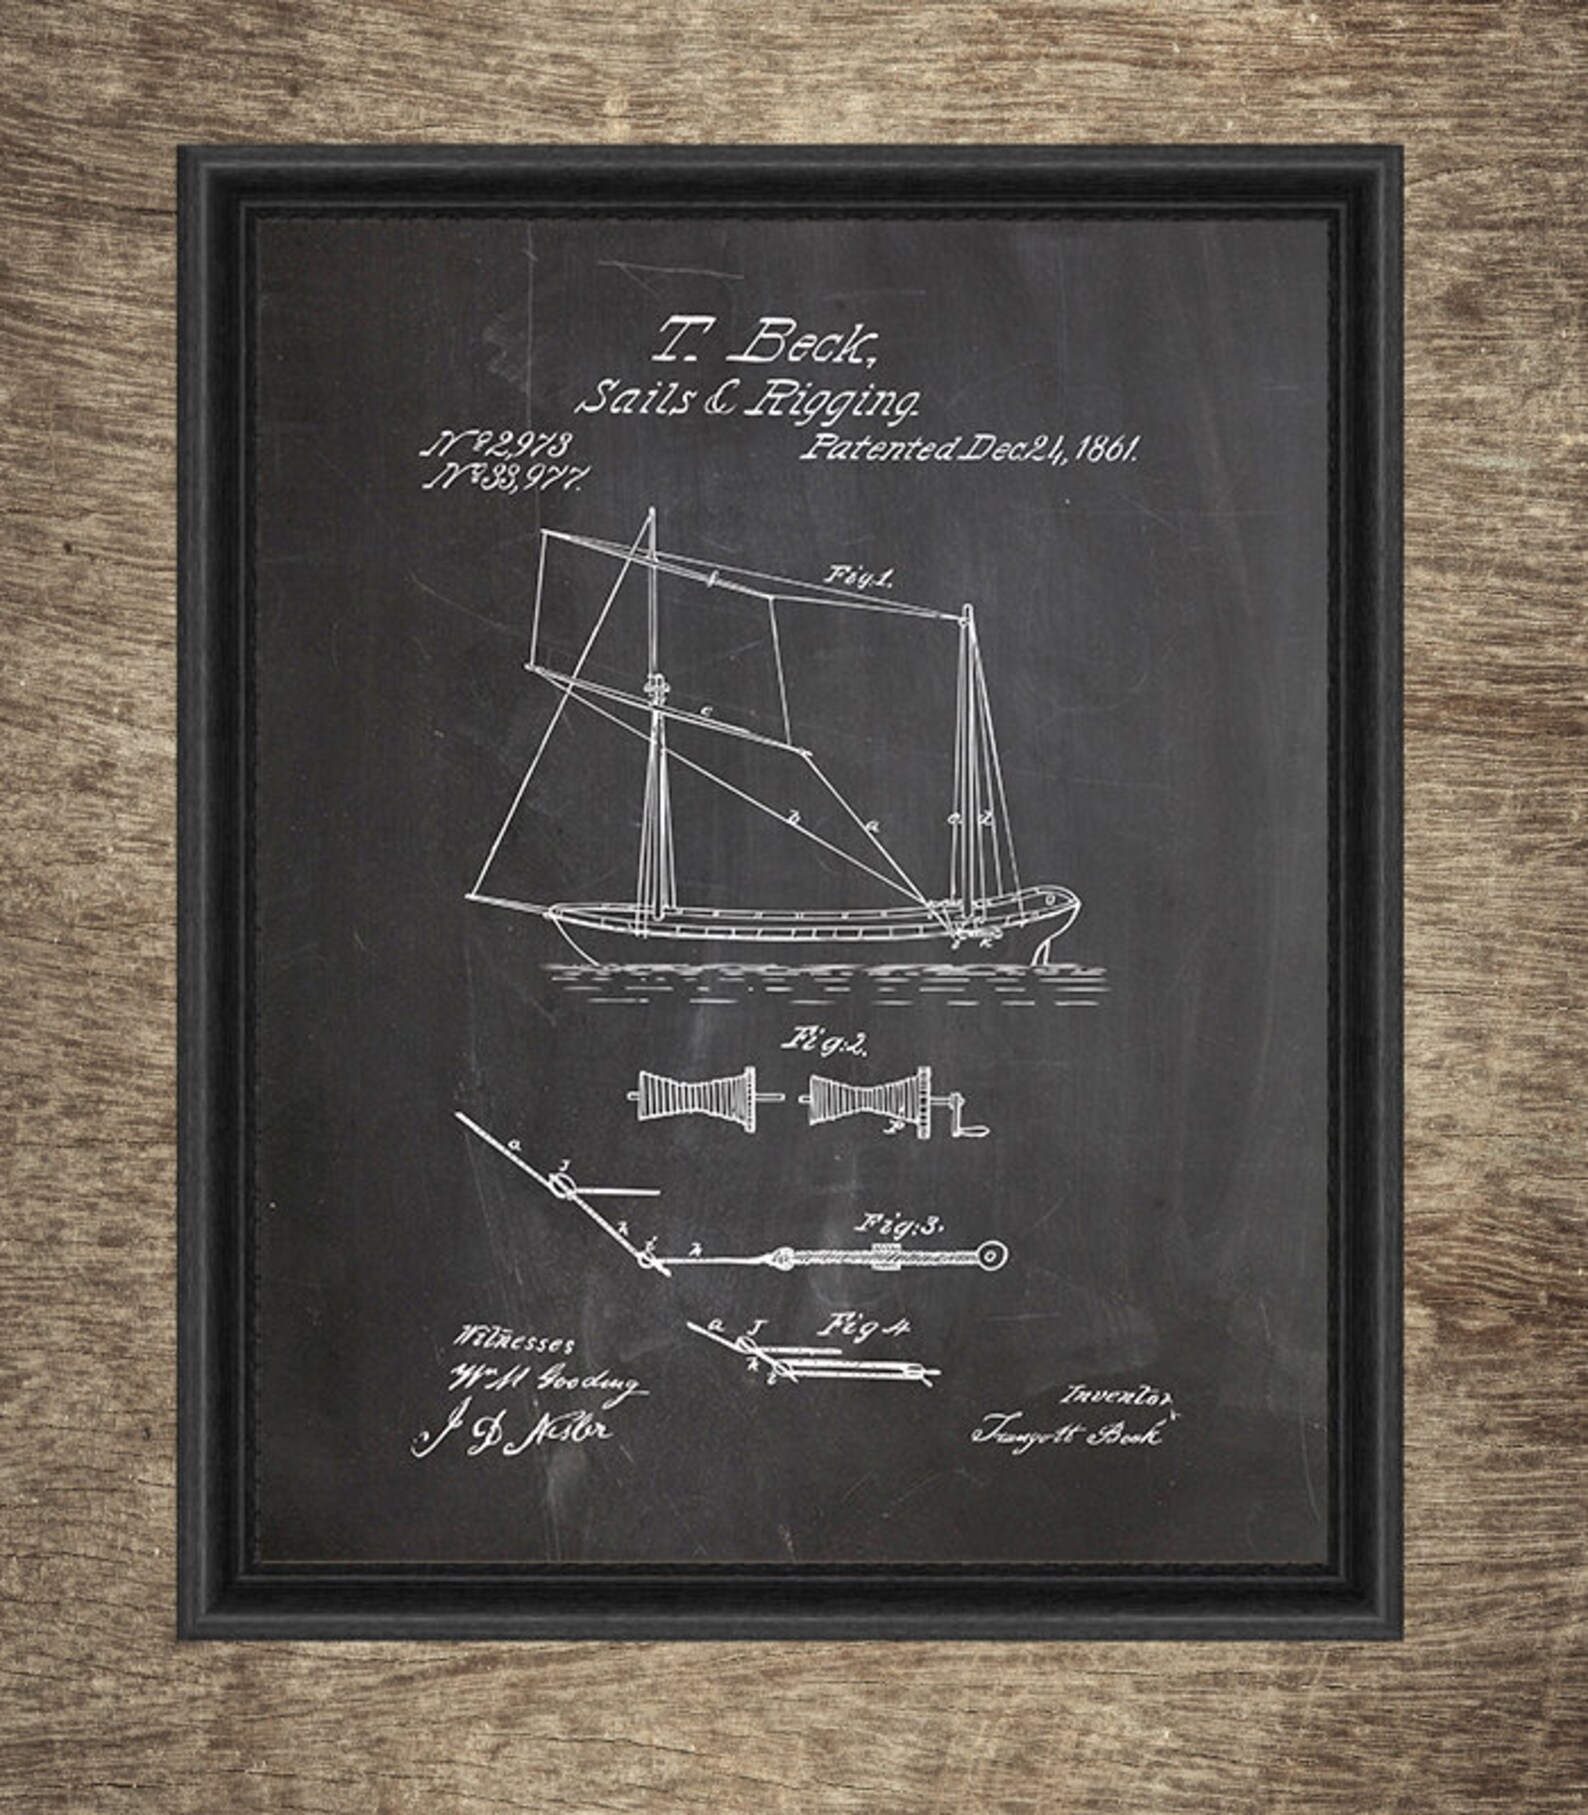 T. Beck,
Sails & Rigging.
Nº 2,973
Nº 33,977.
Patented Dec. 24, 1861.
Fig. 1.
f
c
b
a
e
d
Fig: 2.
P
a
J
h
i
h
Fig: 3.
a
J
h
i
Fig 4
Witnesses
Wm M Gooding
J D
Inventor
Beck